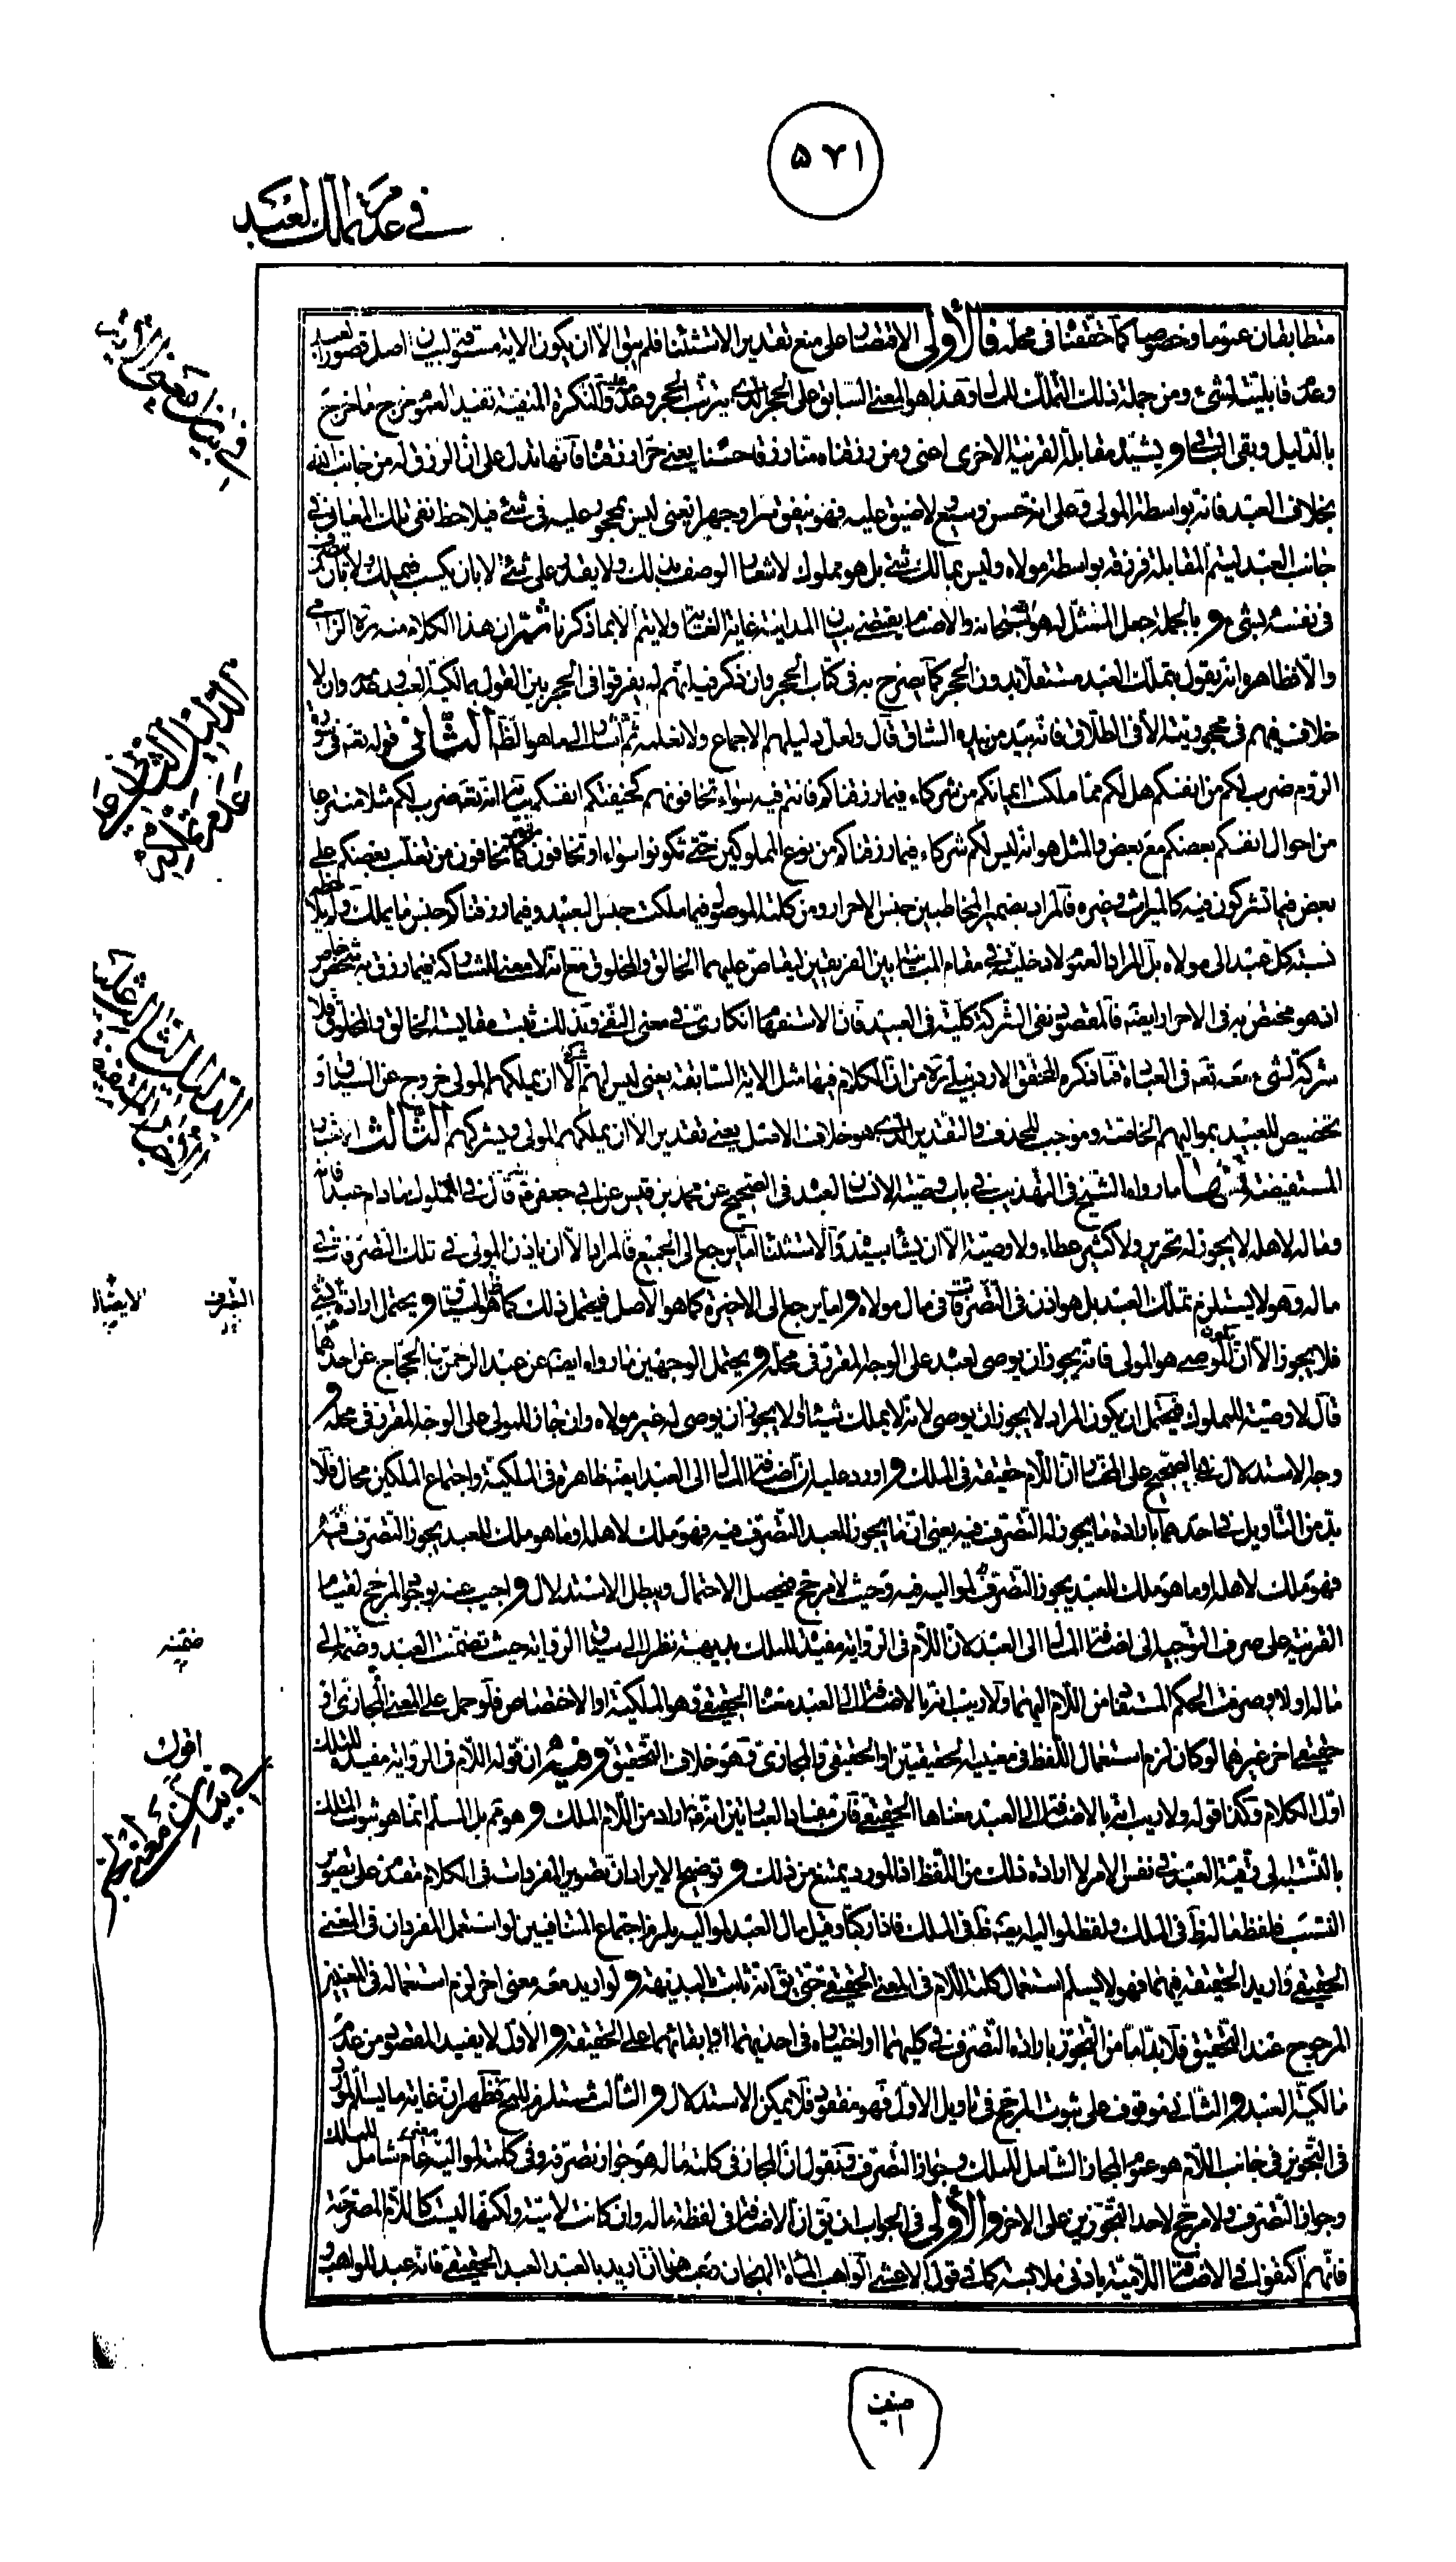 ۵۷۱
في عدم تملك العبد
متطابقان عموما وخصوصا كما حققنا في محله فالأولى الاقتصار على منع تقدير الاستثناء فلم يبق الا ان يكون الاية مسوقة لبيان اصل قصور العبد
وعدم قابليته لشيء ومن جملة ذلك التملك للمال وهذا هو المعنى السابق على الحجر الذي يترتب الحجر وعدمه عليه والنكرة المنفية تفيد العموم خرج ما خرج
بالدليل وبقى الباقي ويشيده مقابلة القرينة الاخرى اعني ومن رزقناه منا رزقا حسنا يعني حرا رزقنا فانها تدل على ان الرزق له من جانب الله
بخلاف العبد فانه بواسطة المولى وعلى انه حسن وسيع لا ضيق عليه فهو ينفق سرا وجهرا يعني ليس بمحجور عليه في شيء فيلاحظ نفى تلك المعاني في
جانب العبد ليتم المقابلة فرزقه بواسطة مولاه وليس بمالك شيء بل هو مملوك لاشعار الوصف بذلك ولا يقدر على شيء لا بان يكسب فيملك ولا بان يتصرف
في نفسه لشيء وبالجملة جعل الممثل له هو الله سبحانه والاصنام يقتضي بيان المباينة غاية الغاية ولا يتم الا بما ذكرنا ثم ان هذا الكلام منه ره الزامي
والا فظاهره انه يقول بتملك العبد مستقلا بدون الحجر كما يصرح به في كتاب الحجر وان ذكر فيه انهم لم يفرقوا في الحجر بين القول بمالكية العبد وعدمه وان لا
خلاف بينهم في محجوريته الا في الطلاق فانه بيد من بيده الساق قال ولعل دليلهم الاجماع ولا نعلمه ثم اشار الى ما هو الظ الثاني قوله تعه في سورة
الروم ضرب لكم من انفسكم هل لكم مما ملكت ايمانكم من شركاء فيما رزقناكم فانتم فيه سواء تخافونهم كخيفتكم انفسكم بيانه انه تعه ضرب لكم مثلا منتزعا
من احوال انفسكم بعضكم مع بعض والمثل هو انه ليس لكم شركاء فيما رزقناكم من نوع المملوكين حتى تكونوا سواء او تخافون منهم كما تخافون من تغلب بعضكم على
بعض فيما تشركون فيه كالميراث وغيره فالمراد بضمير المخاطبين جنس الاحرار ومن كلمة الموصول فيما ملكت جنس العبيد وفيما رزقناكم جنس ما يملك ولم يلاحظ
نسبة كل عبد الى مولاه بل المراد العموم لا دخلية في مقام المباينة بين الفريقين ليقاس عليهما الخالق والمخلوق مع انه لا معنى للمشاركة فيما رزق به شخص خاص
اذ هو مختص به في الاحرار ايضه فالمقصود نفى الشركة كلية في العبيد فان الاستفهام انكاري في معنى النفى وبذلك يثبت مقايسة الخالق والمخلوق فلا
شركة لشيء معه تعه في العبادة فما ذكره المحقق الاردبيلي ره من ان الكلام فيها مثل الاية السابقة يعني ليس لهم شركة الا ان يملكهم المولى خروج عن السياق او
تخصيص للعبيد بمواليهم الخاصة وموجب للحذف والتقدير الذي هو خلاف الاصل يعني تقدير الا ان يملكهم المولى ويشركهم الثالث الاخبار
المستفيضة فمنها ما رواه الشيخ في التهذيب في باب وصية الانسان لعبده في الصحيح عن محمد بن قيس عن ابي جعفر ع قال في المملوك ما دام عبدا فانه
وماله لاهله لا يجوز له تحرير ولا كثير عطاء ولا وصية الا ان يشاء سيده والاستثناء اما يرجع الى الجميع فالمراد الا ان ياذن المولى في تلك التصرفات في
ماله وهو لا يستلزم تملك العبد بل هو اذن في التصرفات في مال مولاه واما يرجع الى الاخيرة كما هو الاصل فيحتمل ذلك كما هو ظاهر السياق ويحتمل ارادة الوصية له
فلا يجوز الا ان يكون الموصى هو المولى فانه يجوز ان يوصى لعبده على الوجه المقرر في محله ويحتمل الوجهين ما رواه ايضه عن عبد الرحمن بن الحجاج عن احدهما ع
قال لا وصية للمملوك فيحتمل ان يكون المراد لا يجوز ان يوصى لانه لا يملك شيئا ولا يجوز ان يوصى له غير مولاه وان جاز للمولى على الوجه المقرر في محله و
وجه الاستدلال بهذا الصحيح على المختار ان اللام حقيقة في الملك واورد عليه ان اضافة المال الى العبد ايضه ظاهرة في الملكية واجتماع الملكين محال فلا
بد من التاويل في احدهما بارادة ما يجوز له التصرف فيه يعني ان ما يجوز للعبد التصرف فيه فهو ملك لاهله او ما هو ملك للعبد يجوز التصرف فيه
فهو ملك لاهله او ما هو ملك للعبد يجوز التصرف لمواليه فيه وحيث لا مرجح فيحصل الاحتمال ويبطل الاستدلال واجيب عنه بوجود المرجح لقيام
القرينة على صرف التوجيه الى اضافة المال الى العبد لان اللام في الرواية مفيدة للملك بديهة نظرا الى سياق الرواية حيث تضمنت العبد وضمته الى
ماله اولا وصرفت الحكم المستفاد من اللام اليهما ولا ريب انه بالاضافة الى العبد معناها الحقيقي وهو الملكية او الاختصاص فلو حمل على المعنى المجازي او
حقيقي اخر غيرهما لو كان لزم استعمال اللفظ في معنييه الحقيقيين او الحقيقي والمجازي وهو خلاف التحقيق وفيه ان قوله اللام في الرواية مفيدة للملك
اول الكلام وكذا قوله ولا ريب انه بالاضافة الى العبد معناها الحقيقي فان مفاد العبارتين انه ع اراد من اللام الملك وهو مم بل المسلم انما هو ثبوت الملك
بالنسبة الى رقبة العبد في نفس الامر لا ارادة ذلك من اللفظ اذ المورد يمنع من ذلك وتوضيح الايراد ان تصوير المفردات في الكلام مقدم على تصوير
النسب فلفظ ماله ظ في الملك ولفظ لمواليه ايضه ظ في الملك فاذا ركبا وقيل مال العبد لمواليه يلزم اجتماع المتنافيين لو استعمل المفردان في المعنى
الحقيقي واريد الحقيقة فيهما فهو لا يسلم استعمال كلمة اللام في المعنى الحقيقي حتى يق انه ثابت بالبديهة ولو اريد معه معنى اخر لزم استعماله في المعنيين
المرجوح عند التحقيق فلا بد اما من التجوز بارادة التصرف في كليهما او اختياره في احديهما او ابقائهما على الحقيقة والاول لا يفيد المقصود من عدم
مالكية العبد والثاني موقوف على ثبوت المرجح في تاويل الاول وهو مفقود فلا يمكن الاستدلال والثالث مستلزم للمحال فظهر ان غاية ما يسلم المورد
في التجويز في جانب اللام هو عموم المجاز الشامل للملك وجواز التصرف ونقول ان المجاز في كلمة ماله هو جواز تصرفه وفي كلمة لمواليه معنى عام شامل للملك
وجواز التصرف ولا مرجح لاحد التجوزين على الاخر والأولى في الجواب ان يق ان الاضافة في لفظة ماله وان كانت لامية ولكنها ليست كاللام المصرحة
فانهم اكتفوا في الاضافة اللامية بادنى ملابسة كما في قول الاعشى الواهب المائة الهجان وعبدها ان اريد بالعبد العبد الحقيقي فانه عبد للواهب
في بيان معنى
الدليل الثاني على عدم تملك العبد
الدليل الثالث
التصرف
ضمنه
اقول
في بيان معنى
صنف